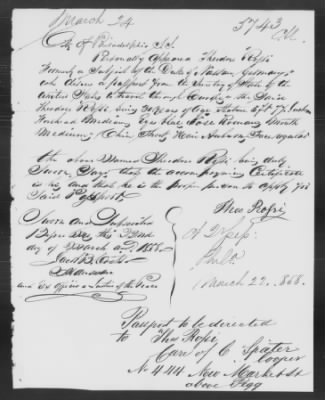 March 24
5743
City of Philadelphia Sd.
Personally Appeared Theodore Rossi
Formerly a Subject of the Duke of Nassau, Germany
and desires a passport from the Secretary of State of the
United States to travel through Europe. the Said
Theodore Rossi being 30 years of Age Stature 5 ft 7½ inches
Forehead Medium, Eyes blue Nose Roman, Mouth
Medium, Chin Hair Auburn Face regular
the above Named Theodore Rossi being duly
Sworn Says that the accompanying Certificate
is his and that he is the proper person to apply for
Said Passport.
Sworn and Subscribed
Before me this 22nd
day of March A.D. 1868.
Alderman
and Ex Officio a Justice of the Peace
Theo Rossi
Phila
March 22. 1868.
Passport to be directed
to Theo Rossi,
Care of C. Später
Cooper
No 444 New Market St
above Pegg